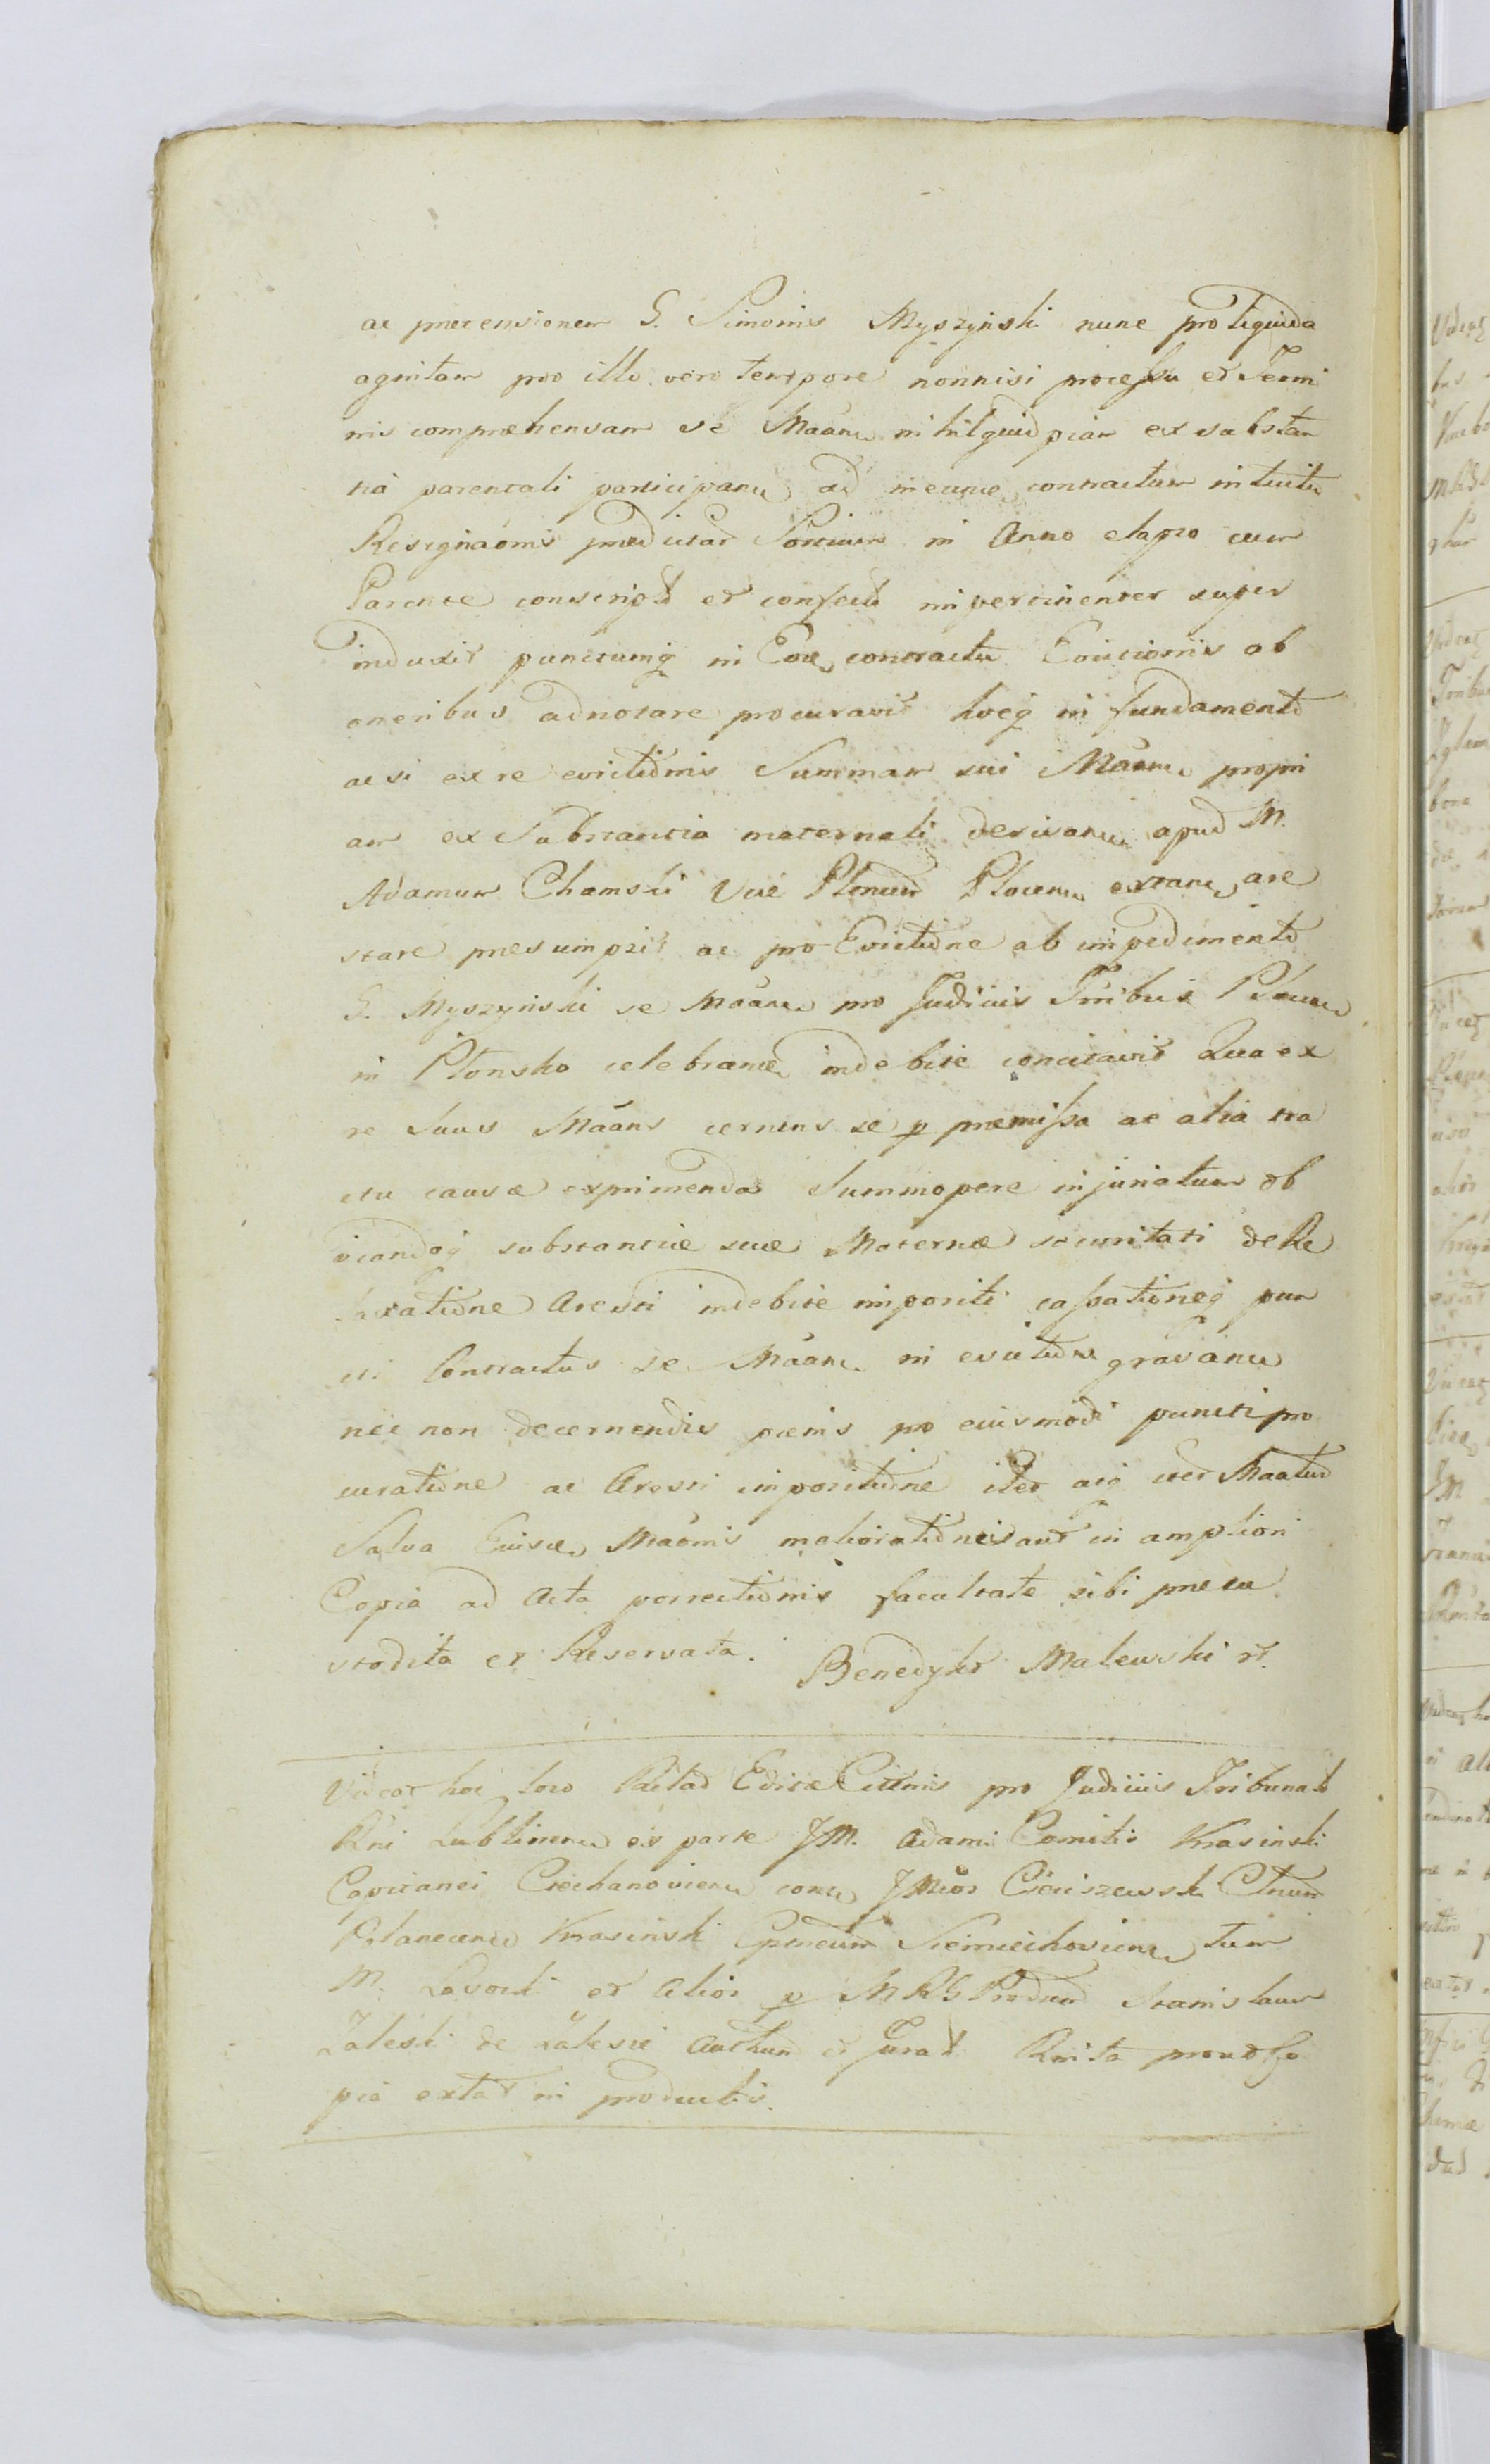 ac prætensionem G. Simonis Myszyński nunc pro liquida
agnitam pro illo vero tempore nonnisi processu et Termi
nis compræhensam se Maãm nihilquidpiam ex substan
tia parentali participanẽ ad ineunẽ contractum intuitu
Resignaõnis prædictar Sortium in Anno elapso cum
Parente conscript et confect impertinenter super
induxit punctumq in Eoẽ contractu Evictionis ab
oneribus adnotare procuravit hocq in fundamento
acsi ex re evictionis Summam sui Maãn propri
am ex Substantia maternali derivanẽ apud M.
Adamum Chamski Vice Plocen extanẽ are
stare præsumpsit ac pro Evictione ab impedimento
G. Myszyński se Maãn pro Judiciis Tribus Plocen
in Płonsko celebranẽ indebite concitavit Qua ex
re Suus Maãns cernens se p præmissa ac alia tra
ctu causæ exprimenda Summopere injuriatum ob
viandoq substantiæ suæ Maternæ securitati de Re
laxatione Aresti indebite impositi cassationeq pun
cti Contractus se Maãn in evictione gravanẽ
nec non decernendis pœnis pro eiusmodi puncti pro
curatione ac Aresti impositione itet atq Maatur
Salva Eiusẽ Maõnis meliorationis aut in ampliori
Copia ad Acta porrectionis facultate sibi præcu
stodita et Reservata. Benedykt Malewski
Videat hoc loco Relao Edictæ Cittnis pro Judiciis Tribunal
Rni Lublinen ex parte JM. Adami Comitis Krasinski
Capitanei Ciechanovien conẽ JMcos Cieciszewski
Krasinski tum
M. et Alios p Stanislaum
Zaleski de Zalesie Jurat Rnita prout Co
pia extat in productis.